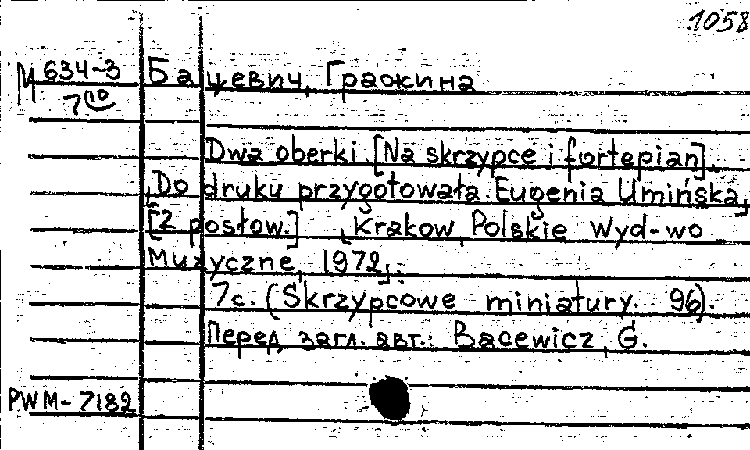 1058
М 634-3 Бацевич, Гражина
7(10
Dwa oberki. [Na skrzypce i fortepian].
[Do druku przygotowała Eugenia Umińska]
[Z posłow.] [Krakow, Polskie Wyd-wo
Muzyczne, 1972].
7 с. (Skrzypcowe miniatury. 96).
Перед загл. авт.: Bacewicz, G.
PWM-7182